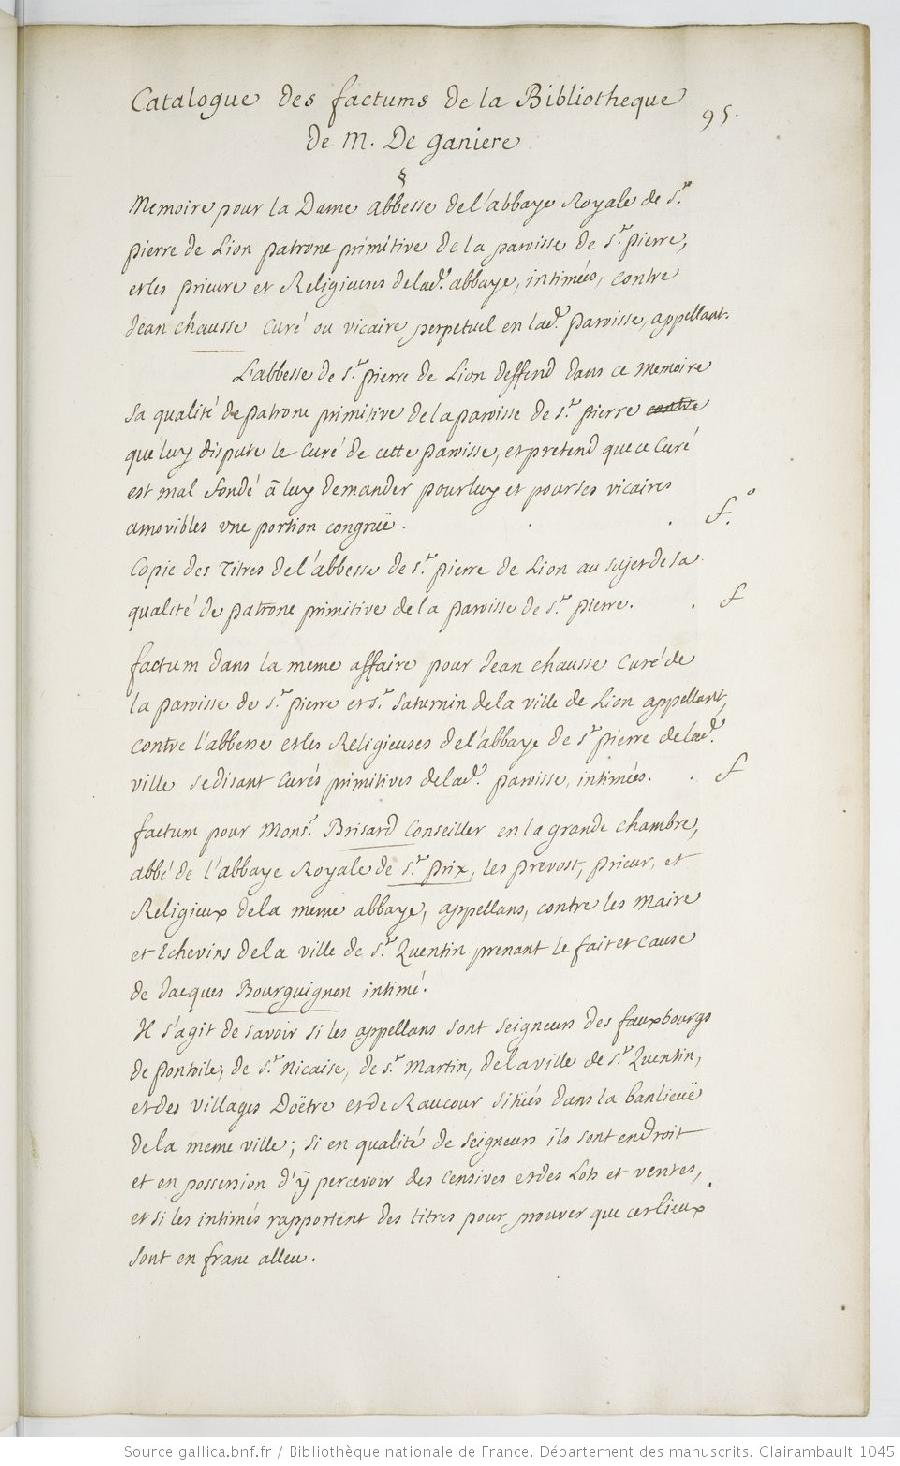 Catalogue des factums de la Bibliotheque
de M. De ganiere
95.
§
Memoire pour la Dame abbesse de l'abbaye Royale de St.
pierre de Lion patrone primitive de la paroisse de St. pierre,
et les prieure et Religieuses de lad. abbaye, intimées, contre
Jean chausse Curé ou vicaire perpetuel en lad. paroisse, appellant.
L'abbesse de St. pierre de Lion deffend dans ce memoire
sa qualité de patrone primitive de la paroisse de St. pierre contre
que luy dispute le Curé de cette paroisse, et pretend que ce Curé
est mal fondé a luy demander pour luy et pour ses vicaires
amovibles vne portion congruë. f.o
Copie des Titres de l'abbesse de St. pierre de Lion au sujet de sa
qualité de patrone primitive de la paroisse de St. pierre. f
factum dans la meme affaire pour Jean chausse Curé de
la paroisse de St. pierre et St. Saturnin de la ville de Lion appellant,
contre l'abbesse et les Religieuses de l'abbaye de St. pierre de lad.
ville se disant Curés primitives de lad. paroisse, intimées. f
factum pour Monsr. Brisard Conseiller en la grande chambre,
abbé de l'abbaye Royale de St. prix, les prevost, prieur, et
Religieux de la meme abbaye, appellans, contre les Maire
et Echevins de la ville de St. Quentin prenant le fait et cause
de Jacques Bourguignon intimé.
Il s'agit de savoir si les appellans sont seigneurs des fauxbourgs
de pontoile, de St. Nicaise, de St. Martin, de la ville de St. Quentin,
et des villages Doëtre et de Raucour sitüés dans la banlieuë
de la meme ville; si en qualité de seigneurs ils sont en droit
et en possession d'ÿ percevoir des censives et des Lots et ventes,
et si les intimés rapportent des titres pour prouver que ces lieux
sont en franc alleu.
Source gallica.bnf.fr / Bibliothèque nationale de France. Département des manuscrits. Clairambault 1045